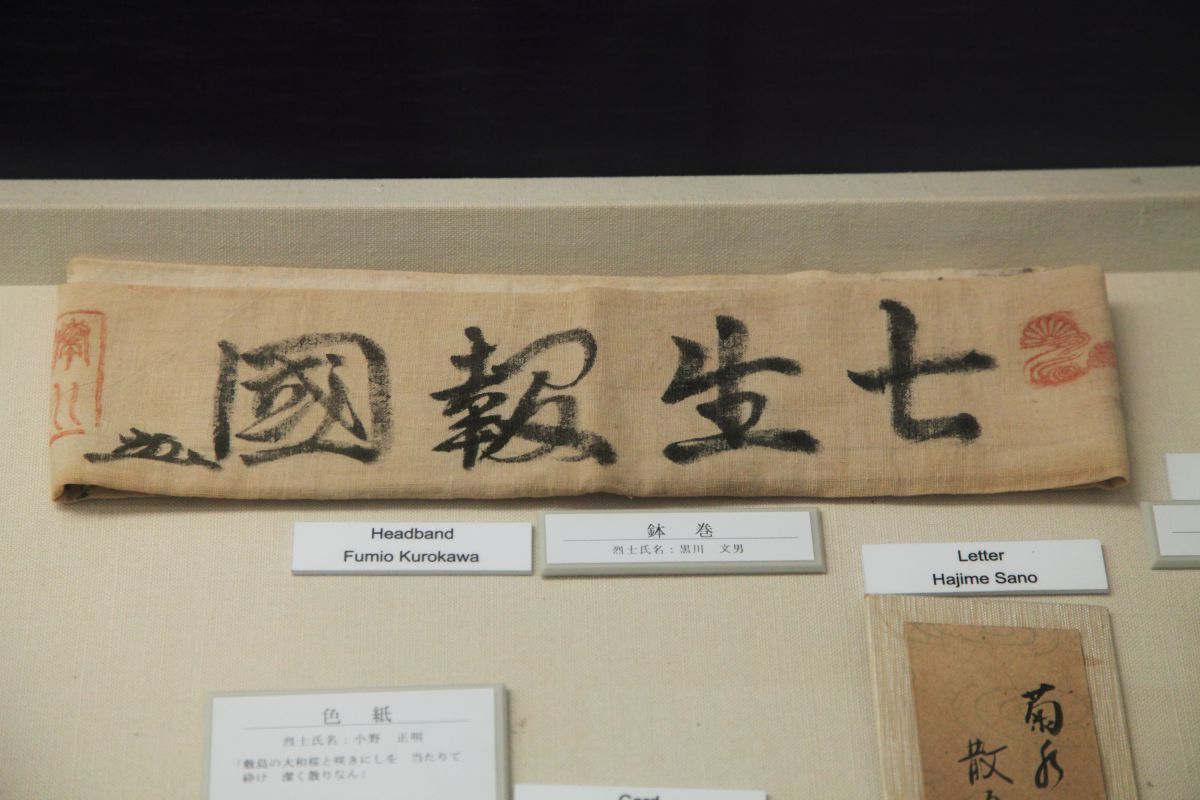 七生報國
Headband
Fumio Kurokawa
鉢 巻
烈士氏名:黒川 文男
Letter
Hajime Sano
菊水
散
色 紙
烈士氏名:小野 正明
「敷島の大和桜と咲きにしを 当たりて
砕け 潔く散りなん」
Card